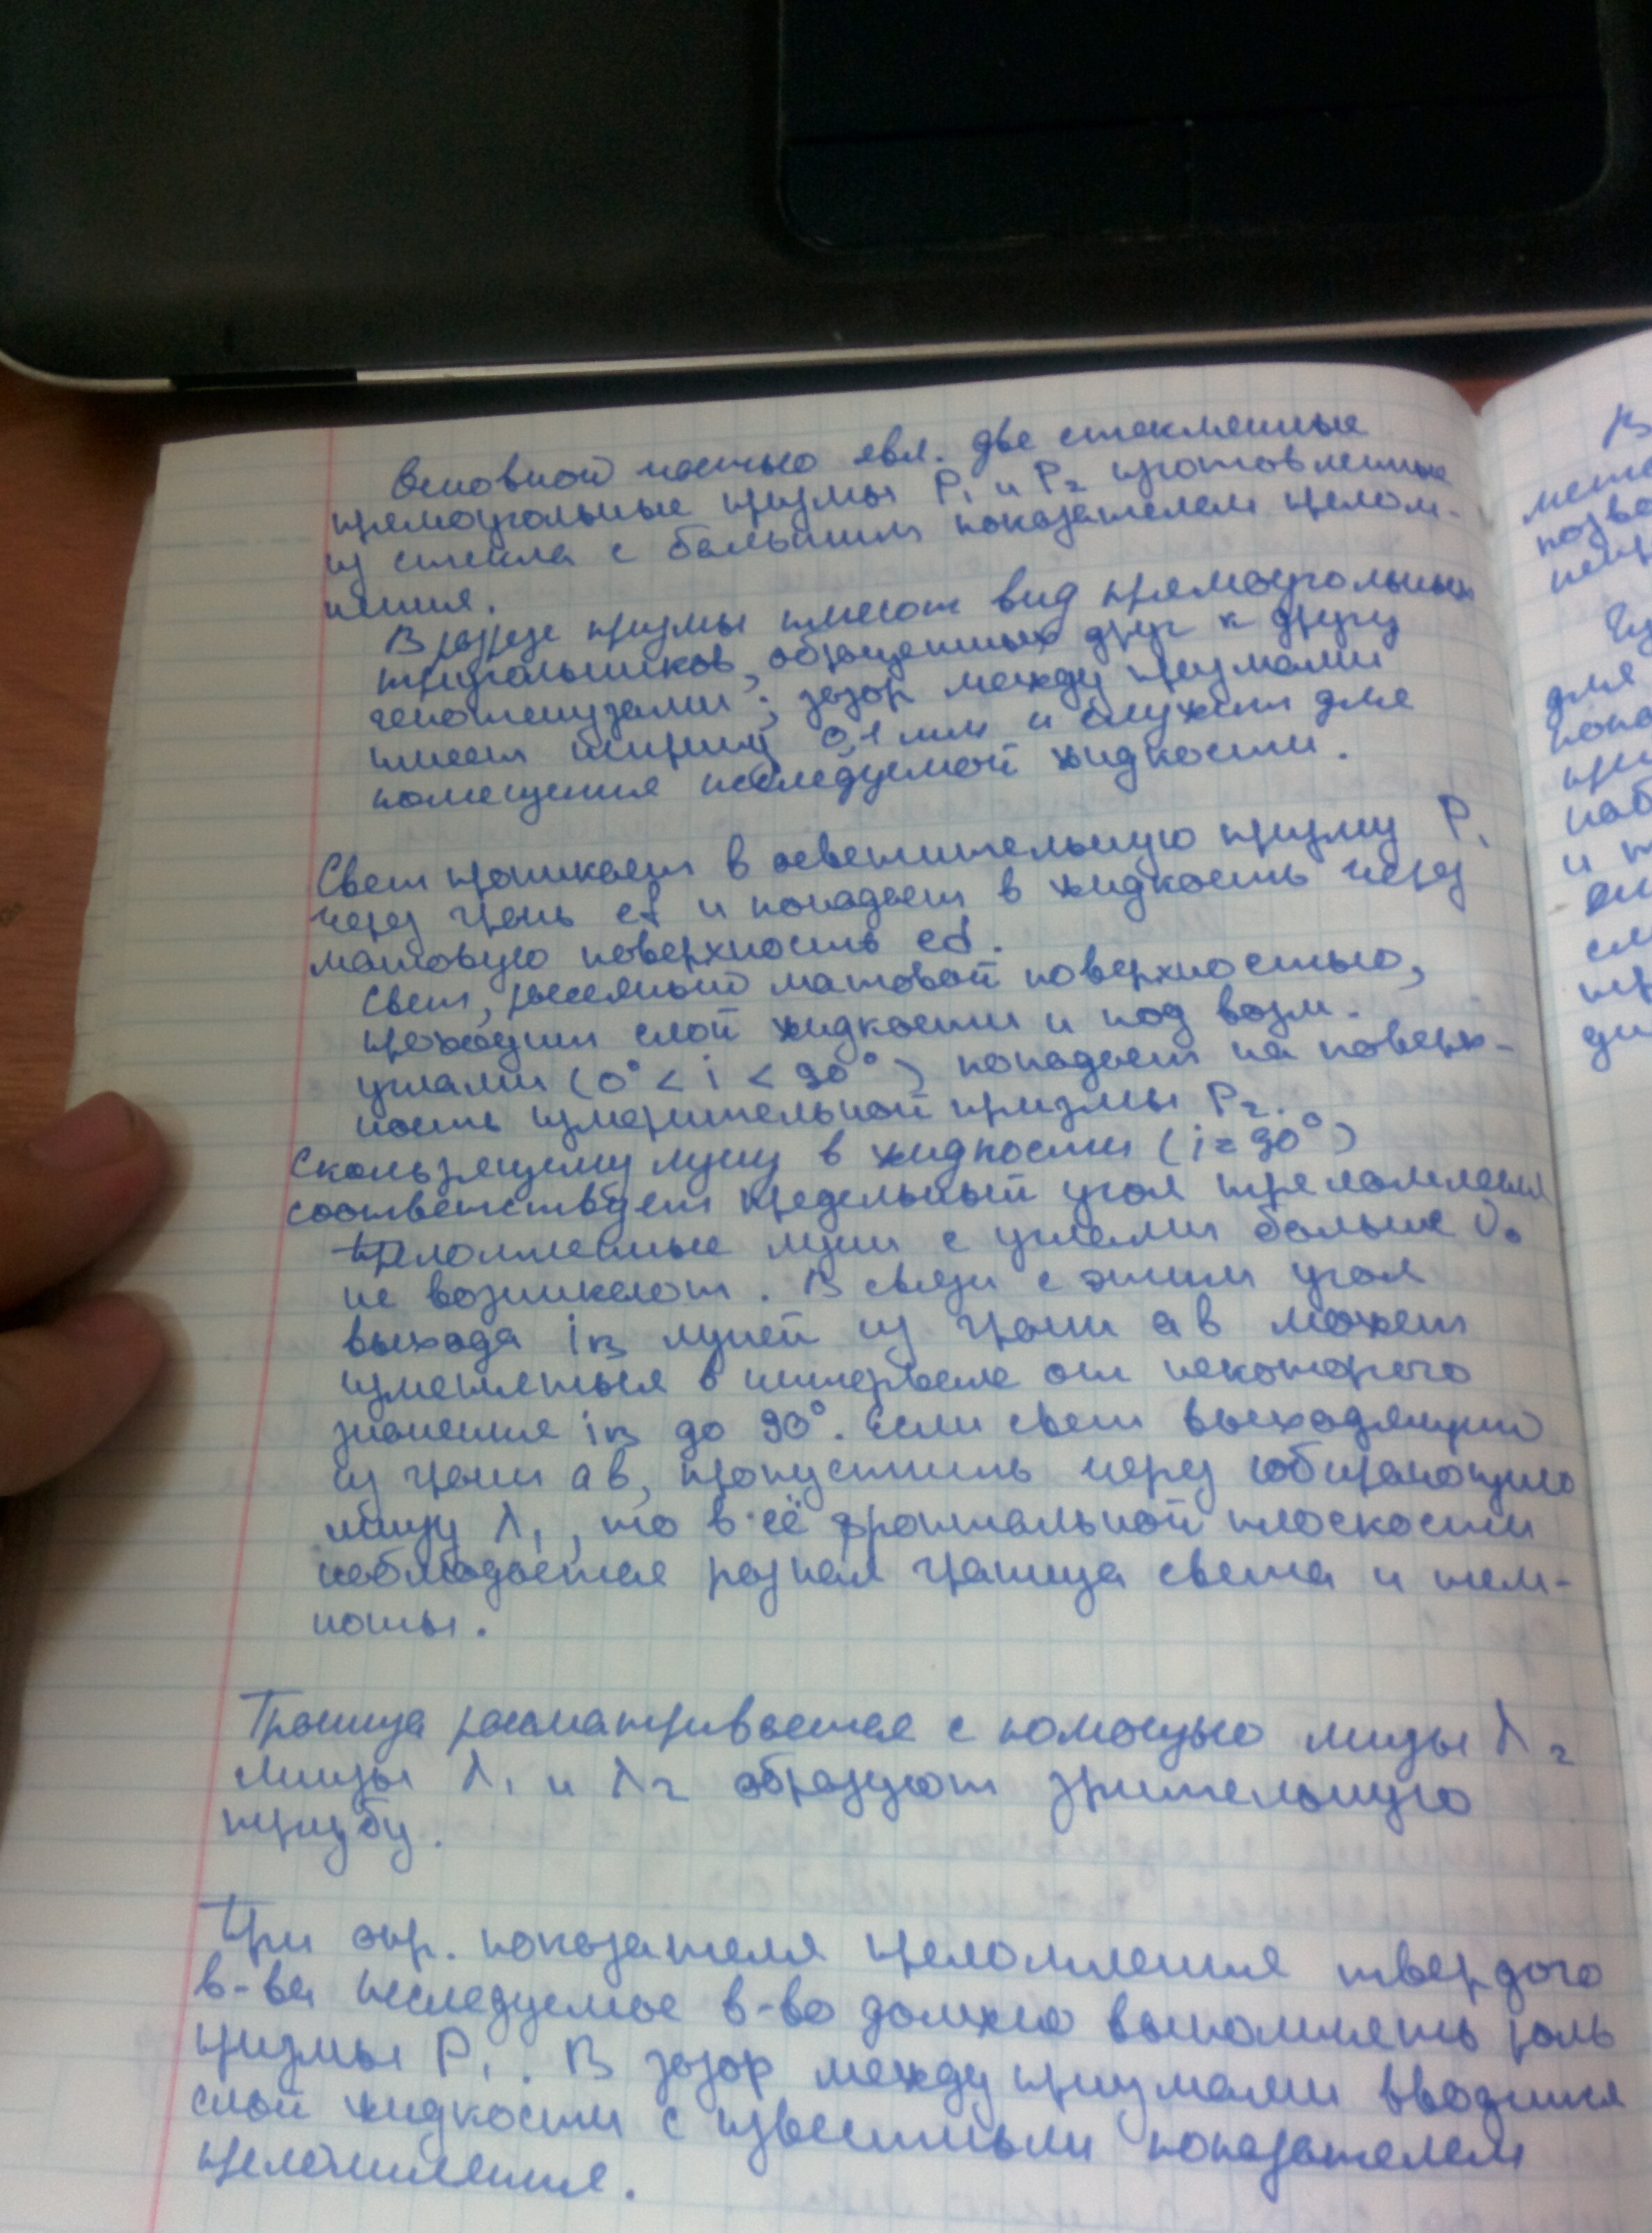 Основной частью явл. две стеклянные
прямоугольные призмы P₁ и P₂ изготовленные
из стекла с большим показателем прелом-
ления.
В разрезе призмы имеют вид прямоугольных
треугольников, обращенных друг к другу
гипотенузами; зазор между призмами
имеет ширину 0,1 мм и служит для
помещения исследуемой жидкости.
Свет проникает в осветительную призму P₁
через грань ef и попадает в жидкость через
матовую поверхность ed.
Свет, рассеяный матовой поверхностью,
проходит слой жидкости и под возм.
углами (0° < i < 90°) попадает на поверх-
ность измерительной призмы P₂.
Скользящему лучу в жидкости (i = 90°)
соответствует предельный угол преломления
Преломленные лучи с углами больше
не возникают. В связи с этим угол
выхода iв лучей из грани ав может
изменяться в интервале от некоторого
значения iв до 90°. Если свет выходящий
из грани ав, пропустить через собирающую
линзу Л₁, то в её фронтальной плоскости
наблюдается резкая граница света и тем-
ноты.
Граница рассматривается с помощью линзы Л₂
Линзы Л₁ и Л₂ образуют зрительную
трубу.
При опр. показателя преломления твердого
в-ва исследуемое в-во должно выполнять роль
призмы P₁. В зазор между призмами вводится
слой жидкости с известным показателем
преломления.
В
для
и